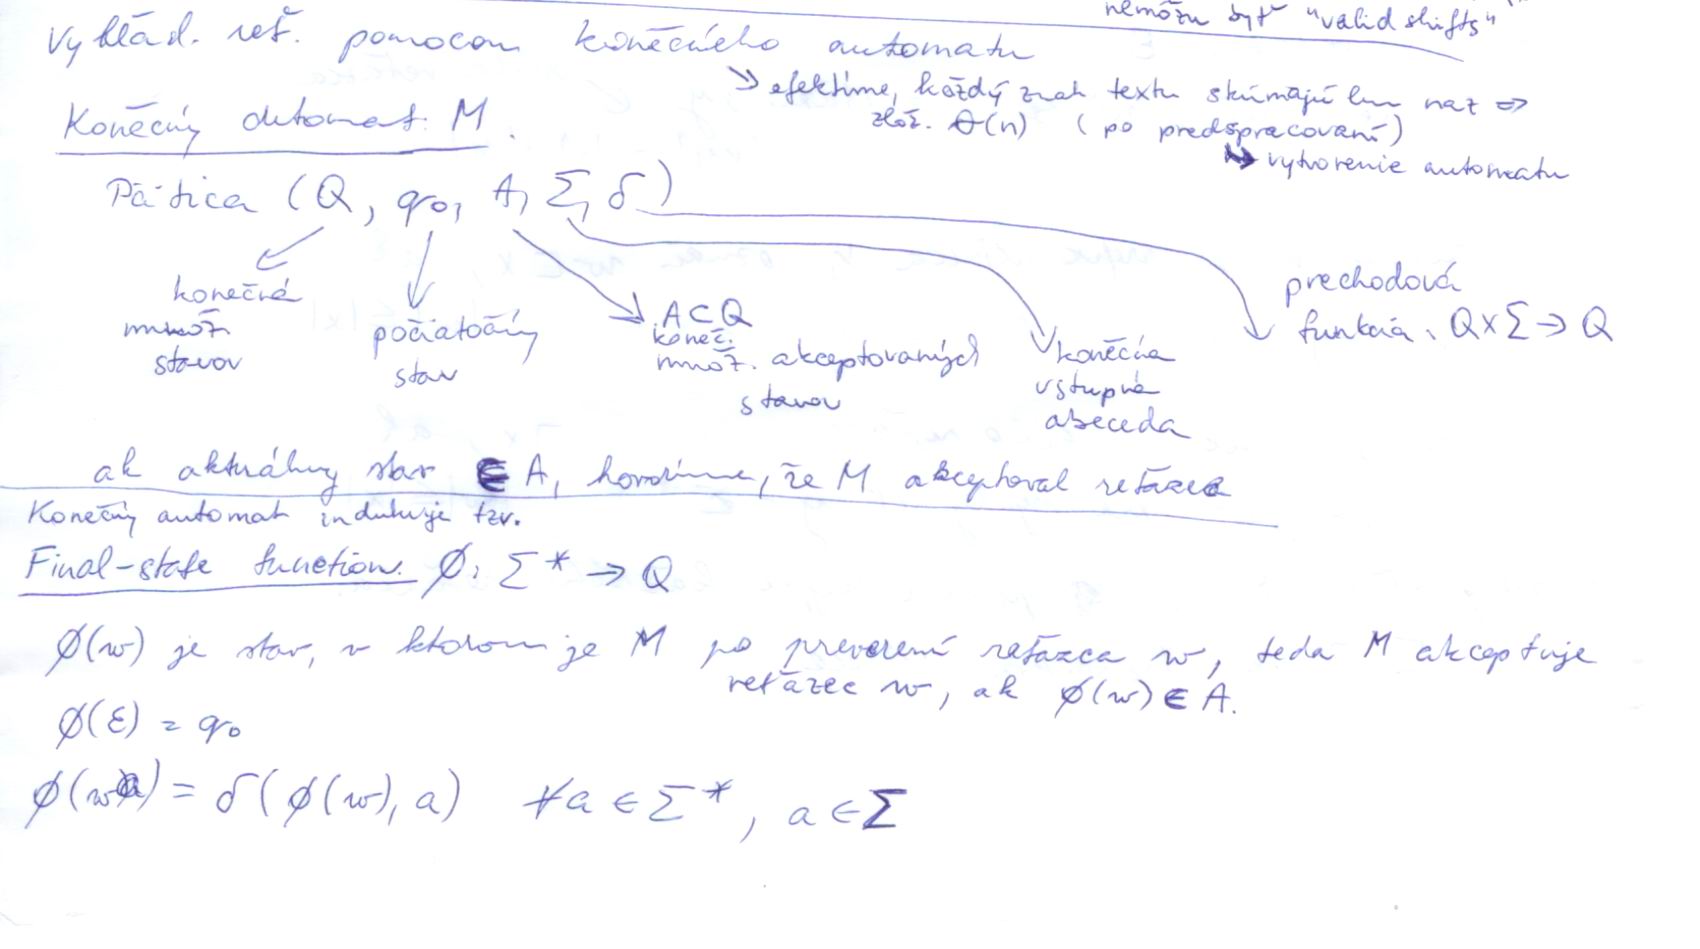 nemôžu byť "valid shifts"
Vyhľad. reť. pomocou konečného automatu
↳ efektívne, každý znak textu skúmajú len raz ⇒
zlož. Θ(n) (po predspracovaní)
↳ vytvorenie automatu
Konečný automat M.
Pätica (Q, q₀, A, Σ, δ)
konečná
množ.
stavov
počiatočný
stav
A⊂Q
koneč.
množ. akceptovaných
stavov
konečná
vstupná
abeceda
prechodová
funkcia: Q×Σ→Q
ak aktuálny stav ∈ A, hovoríme, že M akceptoval reťazec
Konečný automat indukuje tzv.
Final-state function: ϕ: Σ* → Q
ϕ(w) je stav, v ktorom je M po preverení reťazca w, teda M akceptuje
reťazec w, ak ϕ(w) ∈ A.
ϕ(ε) = q₀
ϕ(wa) = δ(ϕ(w), a) ∀a ∈ Σ*, a ∈ Σ